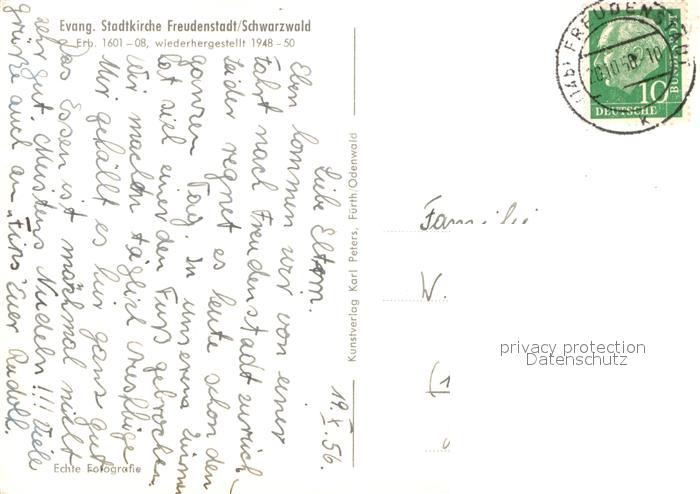 Evang. Stadtkirche Freudenstadt/Schwarzwald
Erb. 1601-08, wiederhergestellt 1948-50
19. X. 56.
Liebe Eltern.
Eben kommen wir von einer
Fahrt nach Freudenstadt zurück.
Leider regnet es heute schon den
ganzen Tag. In unserem Zimmer
hat sich einer den Fuß gebrochen.
Wir machen täglich Ausflüge.
Mir gefällt es hier ganz gut
Das Essen ist manchmal nicht
sehr gut. Meistens Nudeln!!! Viele
grüße auch an Euer Rudolf.
Echte Fotografie
Kunstverlag Karl Peters, Fürth/Odenwald
FREUDENSTADT
10
DEUTSCHE
BUNDESPOST
Familie
W.
(1
privacy protection
Datenschutz